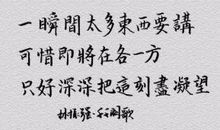 一瞬間太多東西要講
可惜即將在各一方
只好深深把這刻盡凝望
林振强